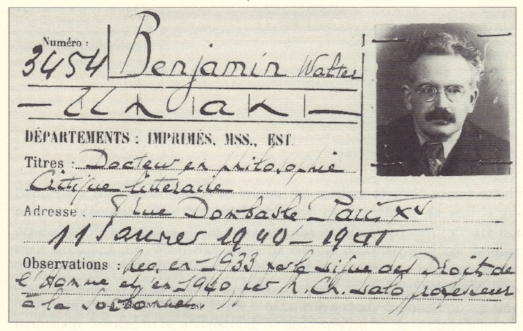 Numéro :
3454 Benjamin Walter
— Un an —
DÉPARTEMENTS : IMPRIMÉS, MSS., EST.
Titres : Docteur en philosophie
Critique littéraire
Adresse : rue Dombasle Paris XV
11 Janvier 1940 – 1941
Observations : Rec. en 1933 par la Ligue des Droits de
l'Homme et, en 1940, par M. Ch. Lalo professeur
à la Sorbonne.